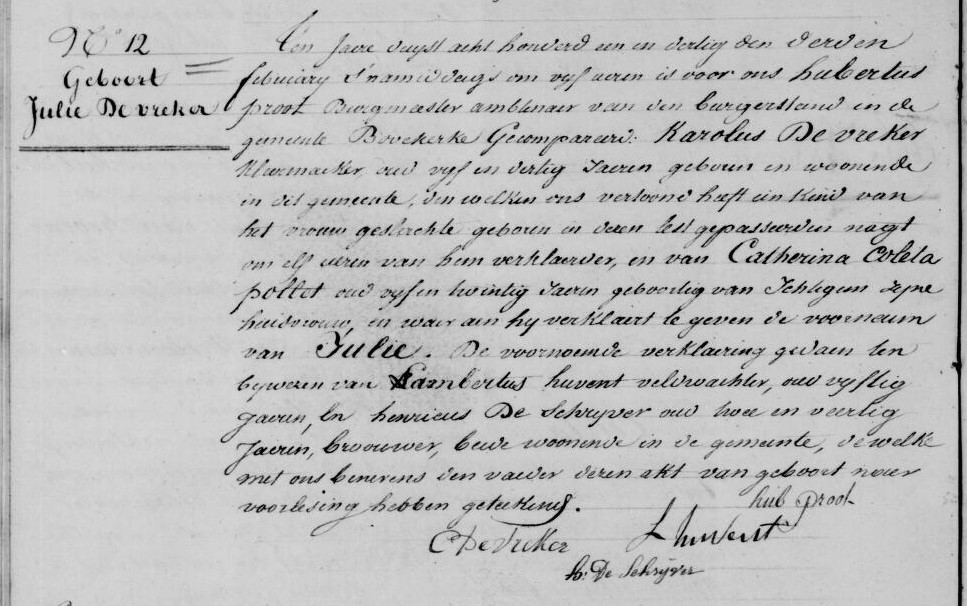 N° 12
Geboort
Julie De vreker
Ten Jaere duyst acht honderd een en dertig den derden
february S'namiddags om vyf ueren is voor ons hubertus
proot Burgmeester ambtenaer van den burgerstand in de
gemeente Bovekerke Gecompareerd: Karolus De vreker
oud vyf en dertig Jaeren geboren en woonende
in dit gemeente, den welken ons vertoond heeft een kind van
het vrouw geslachte geboren in deren lest gepasseerden nagt
om elf ueren van hem verklaerder, en van Catherina Coleta
pollet oud vyf en twintig Jaeren geboortig van Ichtegem zyne
huisvrouw, en waer aen hy verklaert te geven de voornaem
van Julie. De voornoemde verklaering gedaen ten
bywezen van Lambertus huvent veldwachter, oud vyftig
jaeren, En henricus De Schryver oud twee en veertig
Jaeren, brouwer, beide woonende in de gemeente, dewelke
met ons benevens den vaeder dezen akt van geboort naer
voorlesing hebben geteekend.
hub proot
C De Vreker
L huvent
h: De Schryver